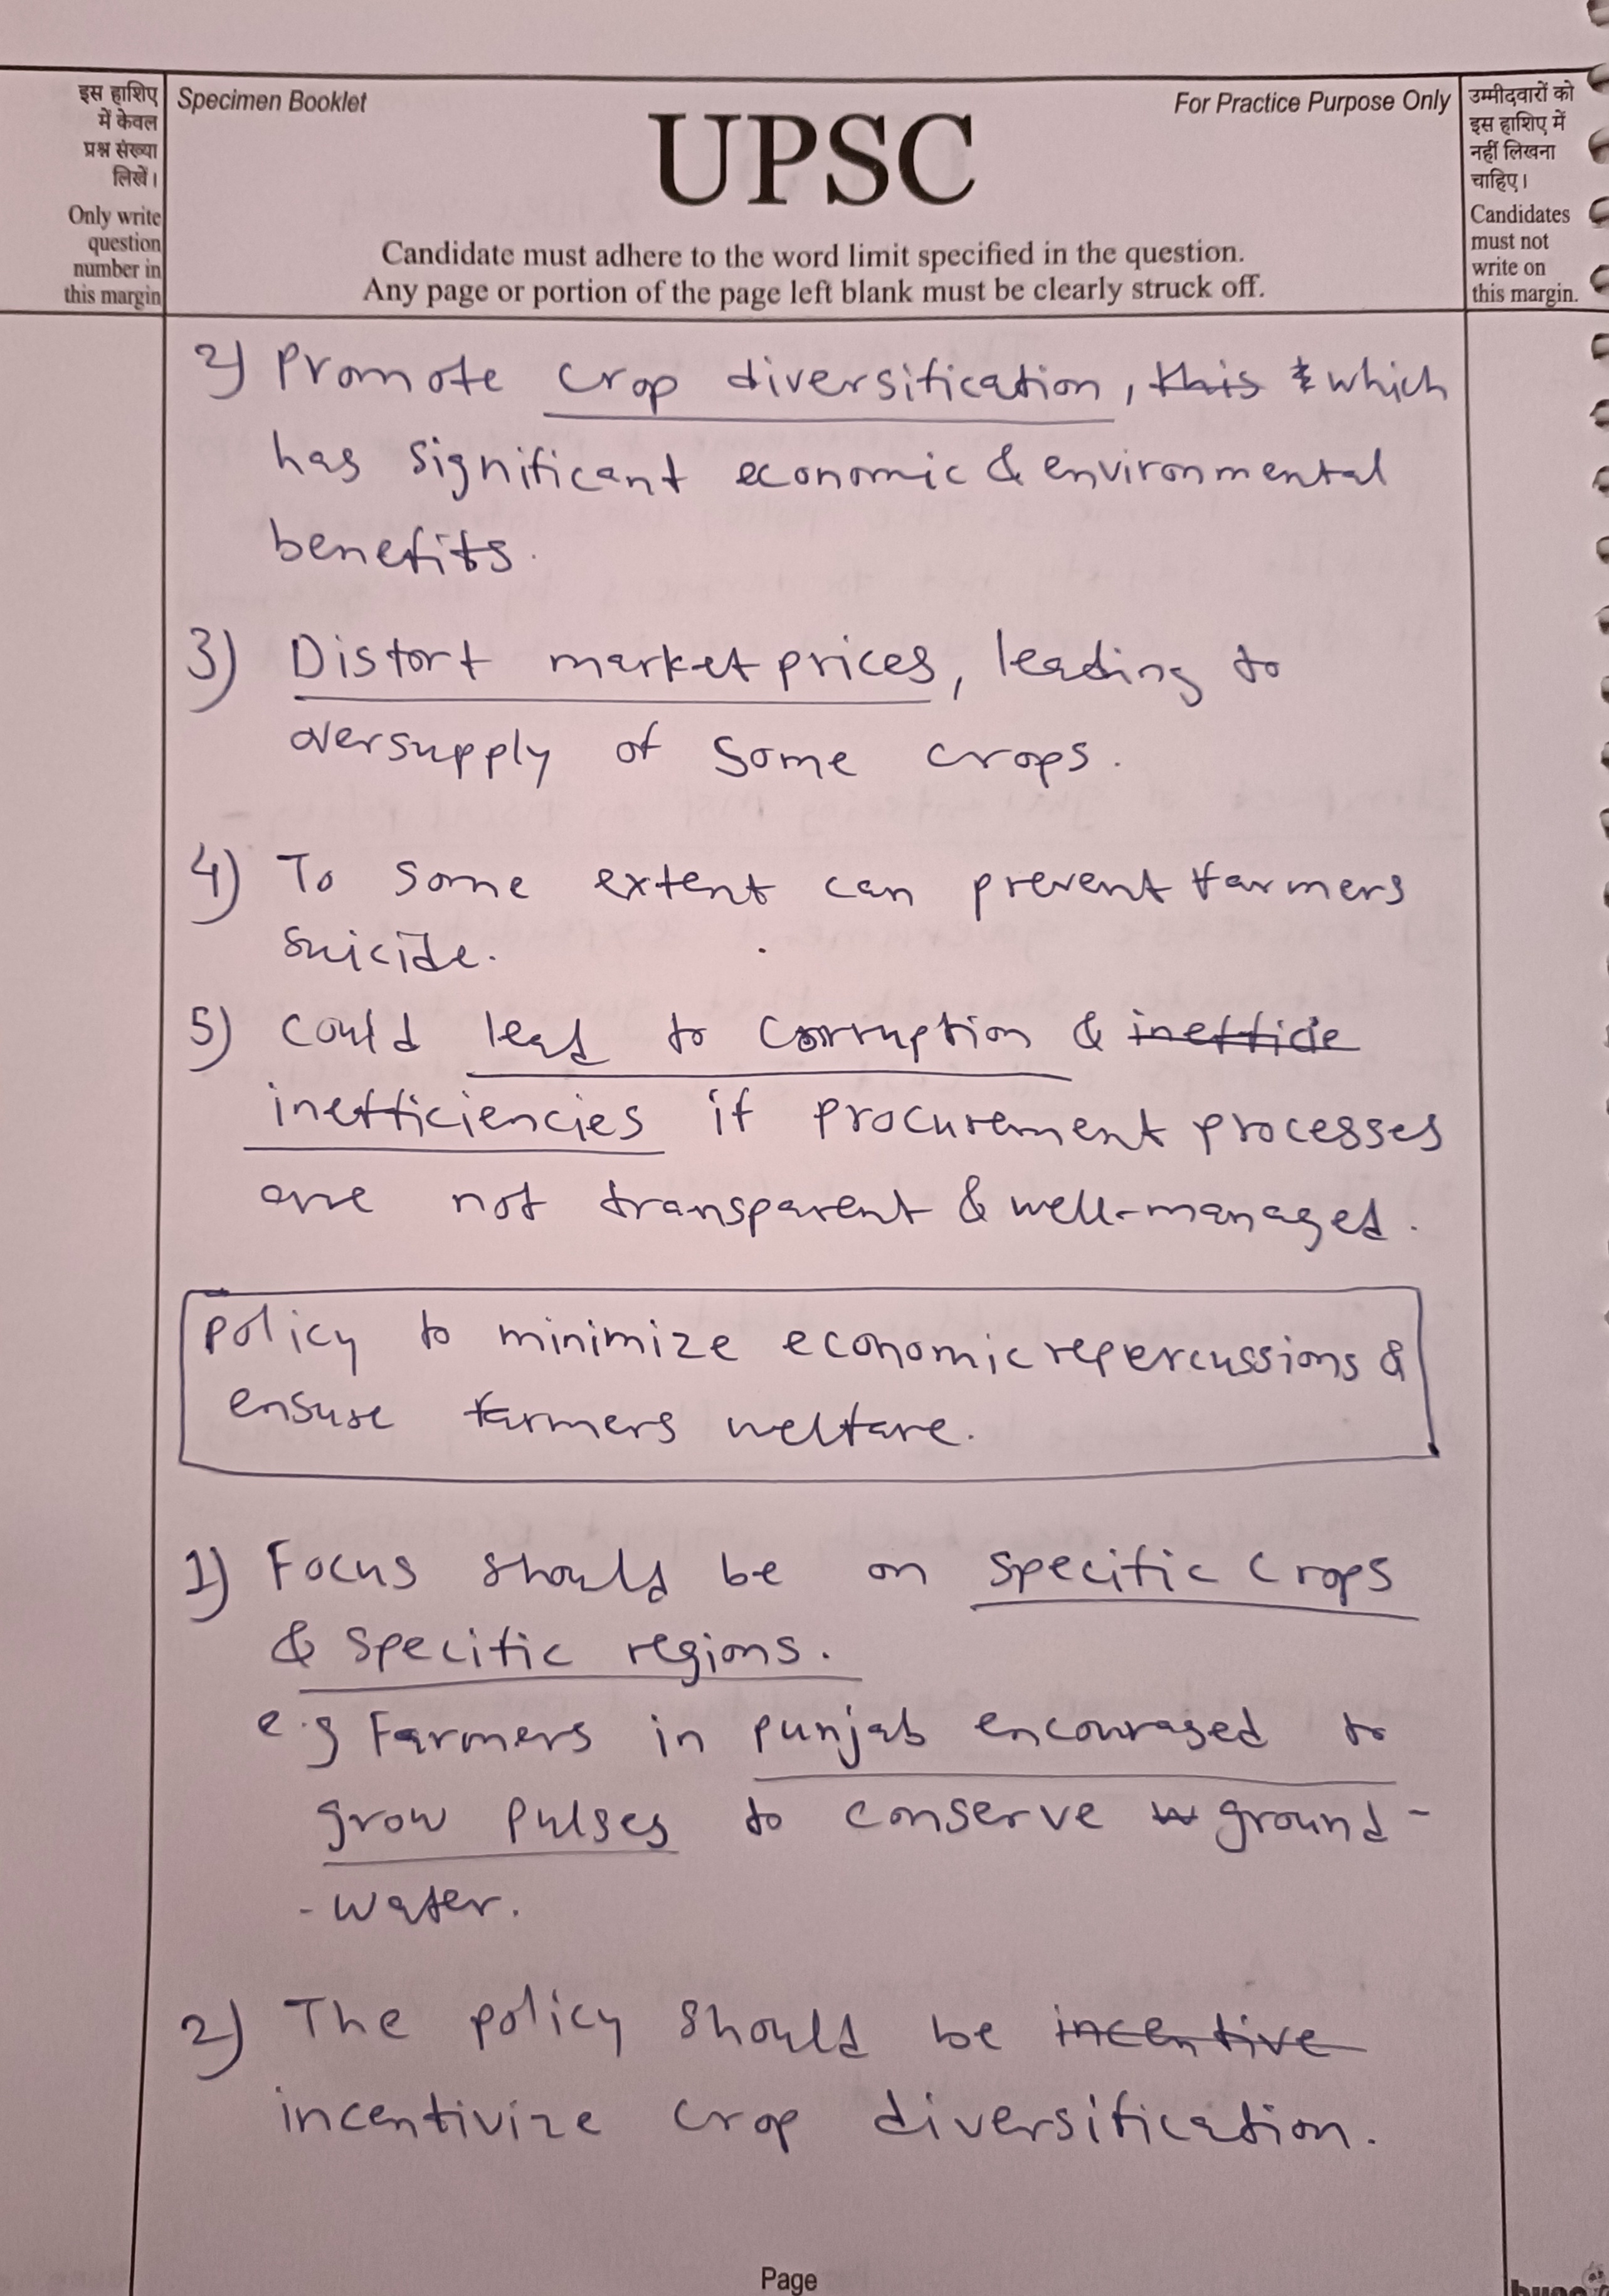 इस हाशिए
में केवल
प्रश्न संख्या
लिखें।
Only write
question
number in
this margin
Specimen Booklet
For Practice Purpose Only
UPSC
Candidate must adhere to the word limit specified in the question.
Any page or portion of the page left blank must be clearly struck off.
उम्मीदवारों को
इस हाशिए में
नहीं लिखना
चाहिए।
Candidates
must not
write on
this margin.
2) Promote crop diversification, this which
has significant economic & environmental
benefits.
3) Distort market prices, leading to
oversupply of some crops.
4) To some extent can prevent farmers
suicide.
5) could lead to corruption & inefficie
inefficiencies if procurement processes
are not transparent & well-managed.
policy to minimize economic repercussions &
ensure farmers welfare.
1) Focus should be on specific crops
& specific regions.
e.g Farmers in punjab encouraged to
grow pulses to conserve w ground-
-water.
2) The policy should be incentive
incentivize crop diversification.
Page